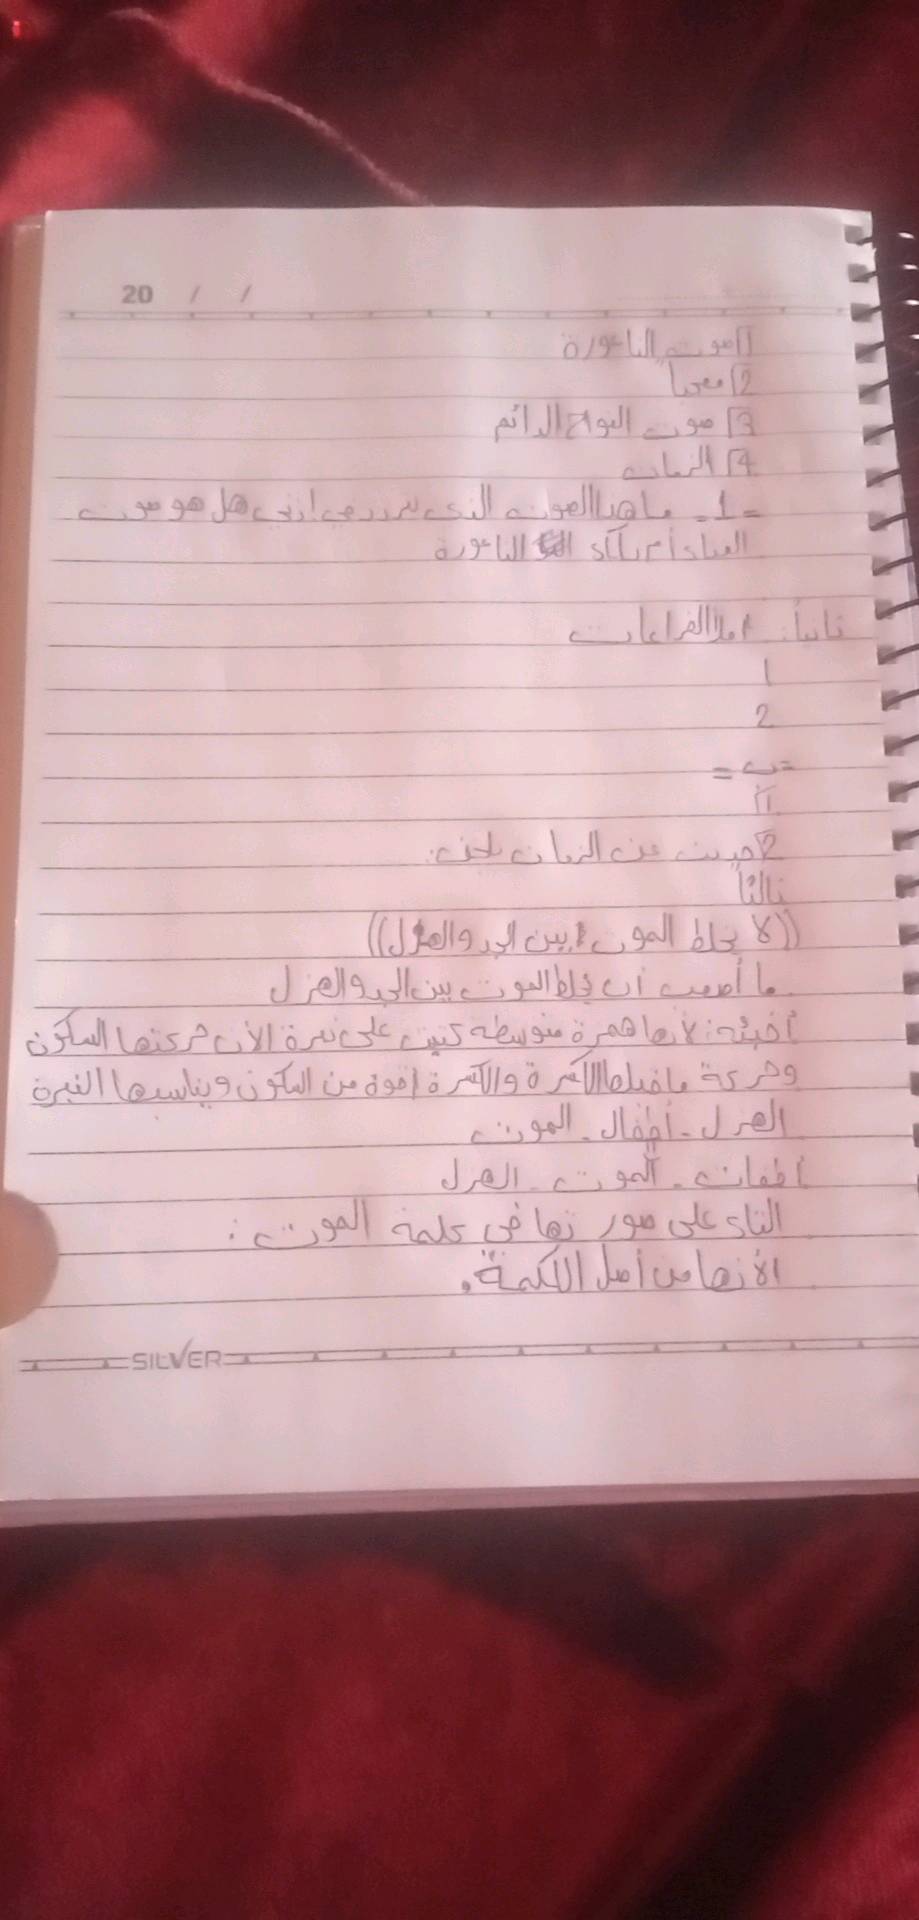 20 / /
1) صوت الناعورة
2)
3) صوت النواح الدائم
4) الزمان
=1- ما هذا الصوت الذي يتردد في أذني هل هو صوت
أم بكاء الناعورة
ثانياً: املأ الفراغات
1
2
=ب=
1)
2) حديث عن الزمان
ثالثاً
((لا يخلط الموت بين الجد والهزل))
ما أصعب أن يخلط الموت بين الجد والهزل
أفئدة: لأنها همزة متوسطة كتبت على نبرة الأن حركتها السكون
وحركة ما قبلها الكسرة والكسرة أقوة من السكون ويناسبها النبرة
الهزل - أطفال - الموت
- الموت - الهزل
التاء على صورتها في كلمة الموت:
الأنها من أصل الكلمة.
SILVER